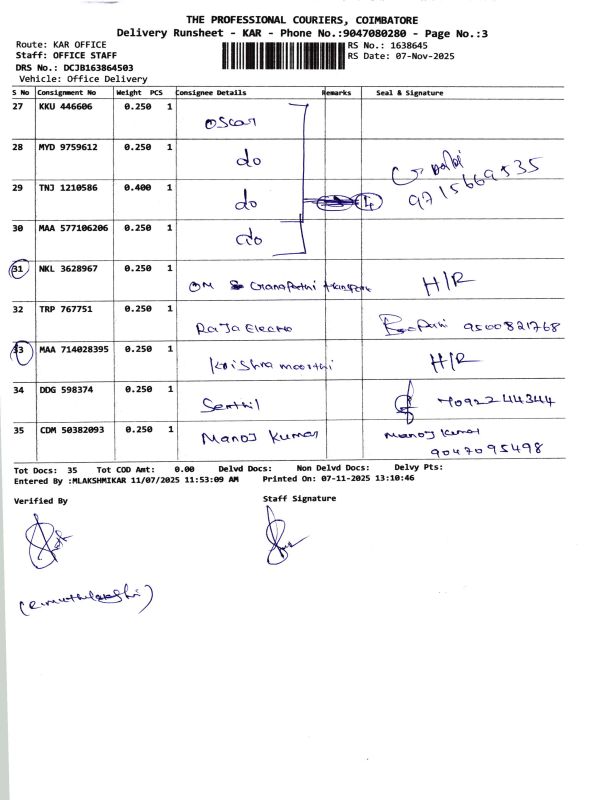 THE PROFESSIONAL COURIERS, COIMBATORE
Delivery Runsheet - KAR - Phone No.:9047080280 - Page No.:3
Route: KAR OFFICE
RS No.: 1638645
Staff: OFFICE STAFF
RS Date: 07-Nov-2025
DRS No.: DCJB163864503
Vehicle: Office Delivery
S No Consignment No Weight PCS Consignee Details Remarks Seal & Signature
27 KKU 446606 0.250 1 Oscar
28 MYD 9759612 0.250 1 do
29 TNJ 1210586 0.400 1 do 4 9715669535
30 MAA 577106206 0.250 1 do
31 NKL 3628967 0.250 1 OM Ganapathi transport H/R
32 TRP 767751 0.250 1 Raja Electro 9500821768
33 MAA 714028395 0.250 1 Krishna moorthi H/R
34 DDG 598374 0.250 1 Senthil 7092244344
35 CDM 50382093 0.250 1 Manoj Kumar Manoj Kumar
9047095498
Tot Docs: 35 Tot COD Amt: 0.00 Delvd Docs: Non Delvd Docs: Delvy Pts:
Entered By :MLAKSHMIKAR 11/07/2025 11:53:09 AM Printed On: 07-11-2025 13:10:46
Verified By Staff Signature